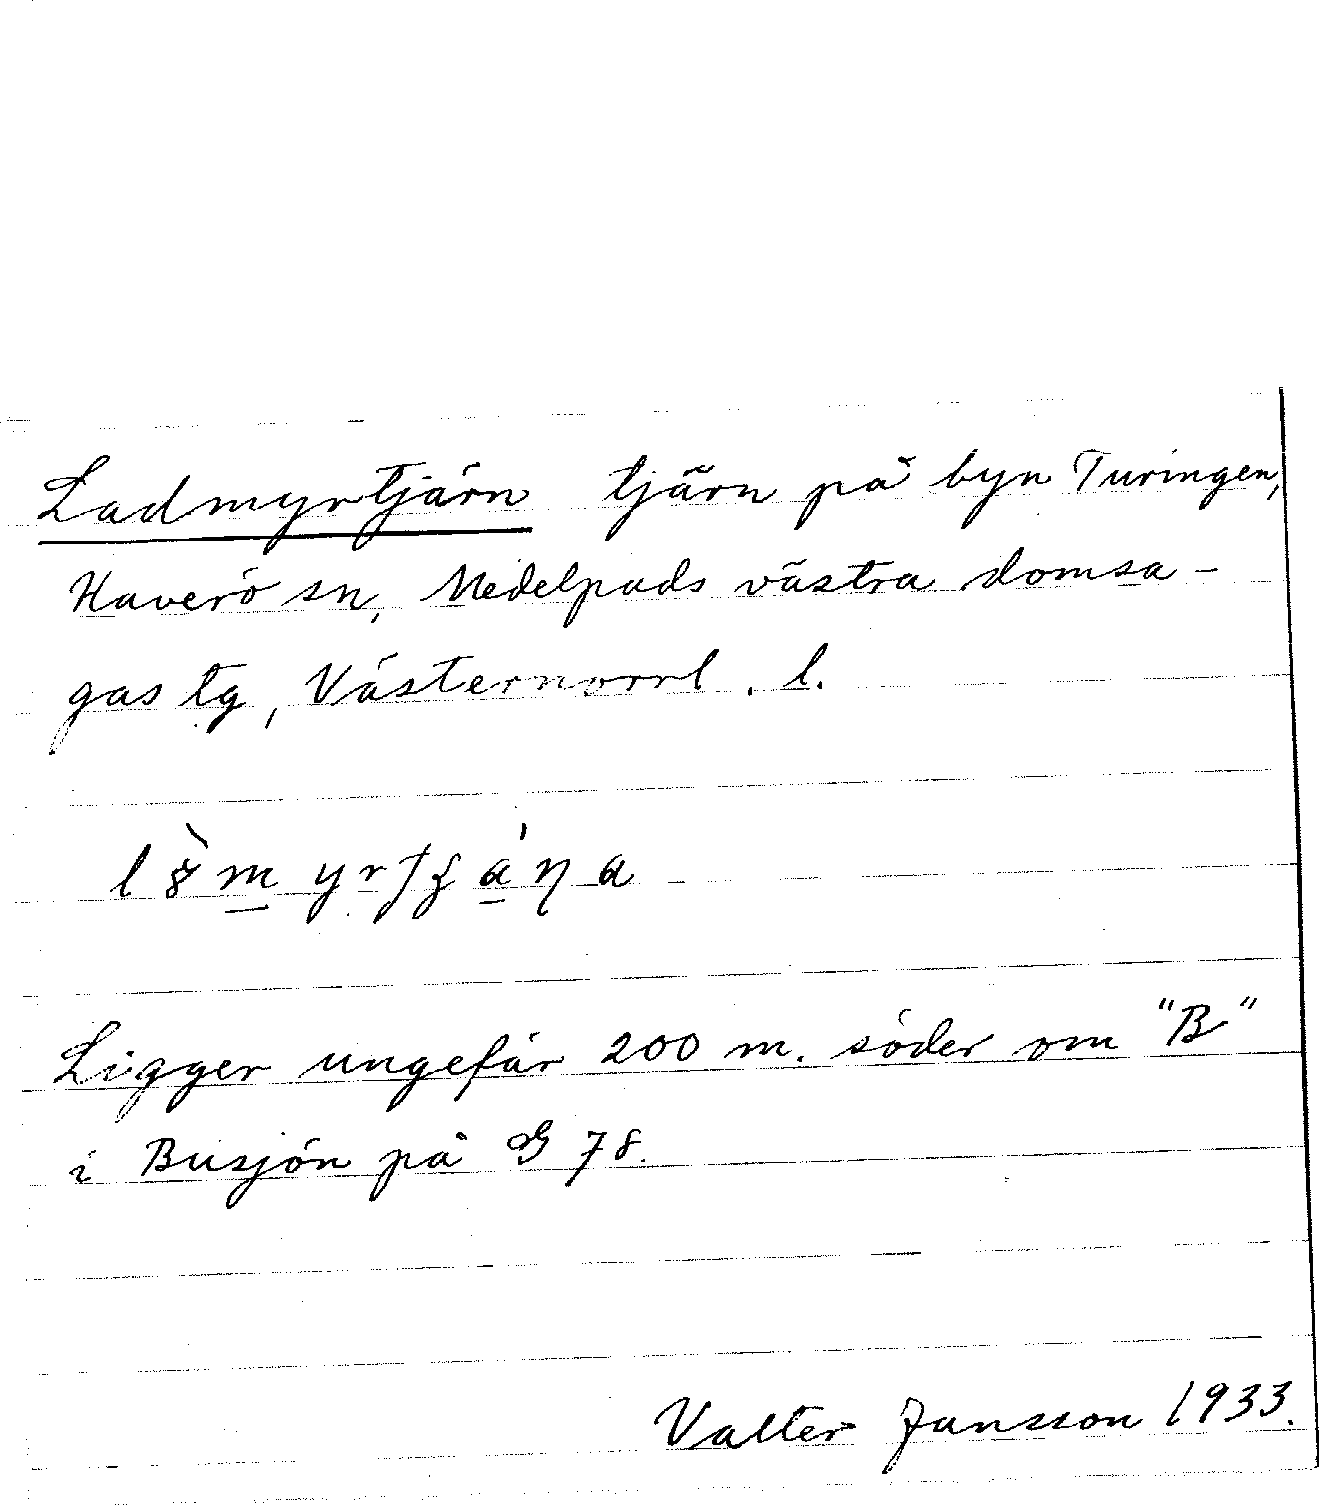 Ladmyrtjärn tjärn på byn Turingen,
Haverö sn, Medelpads västra domsa-
gas tg, Västernorrl. l.
Ligger ungefär 200 m. söder om "B"
i Busjön på G 78.
Valter Jansson 1933.